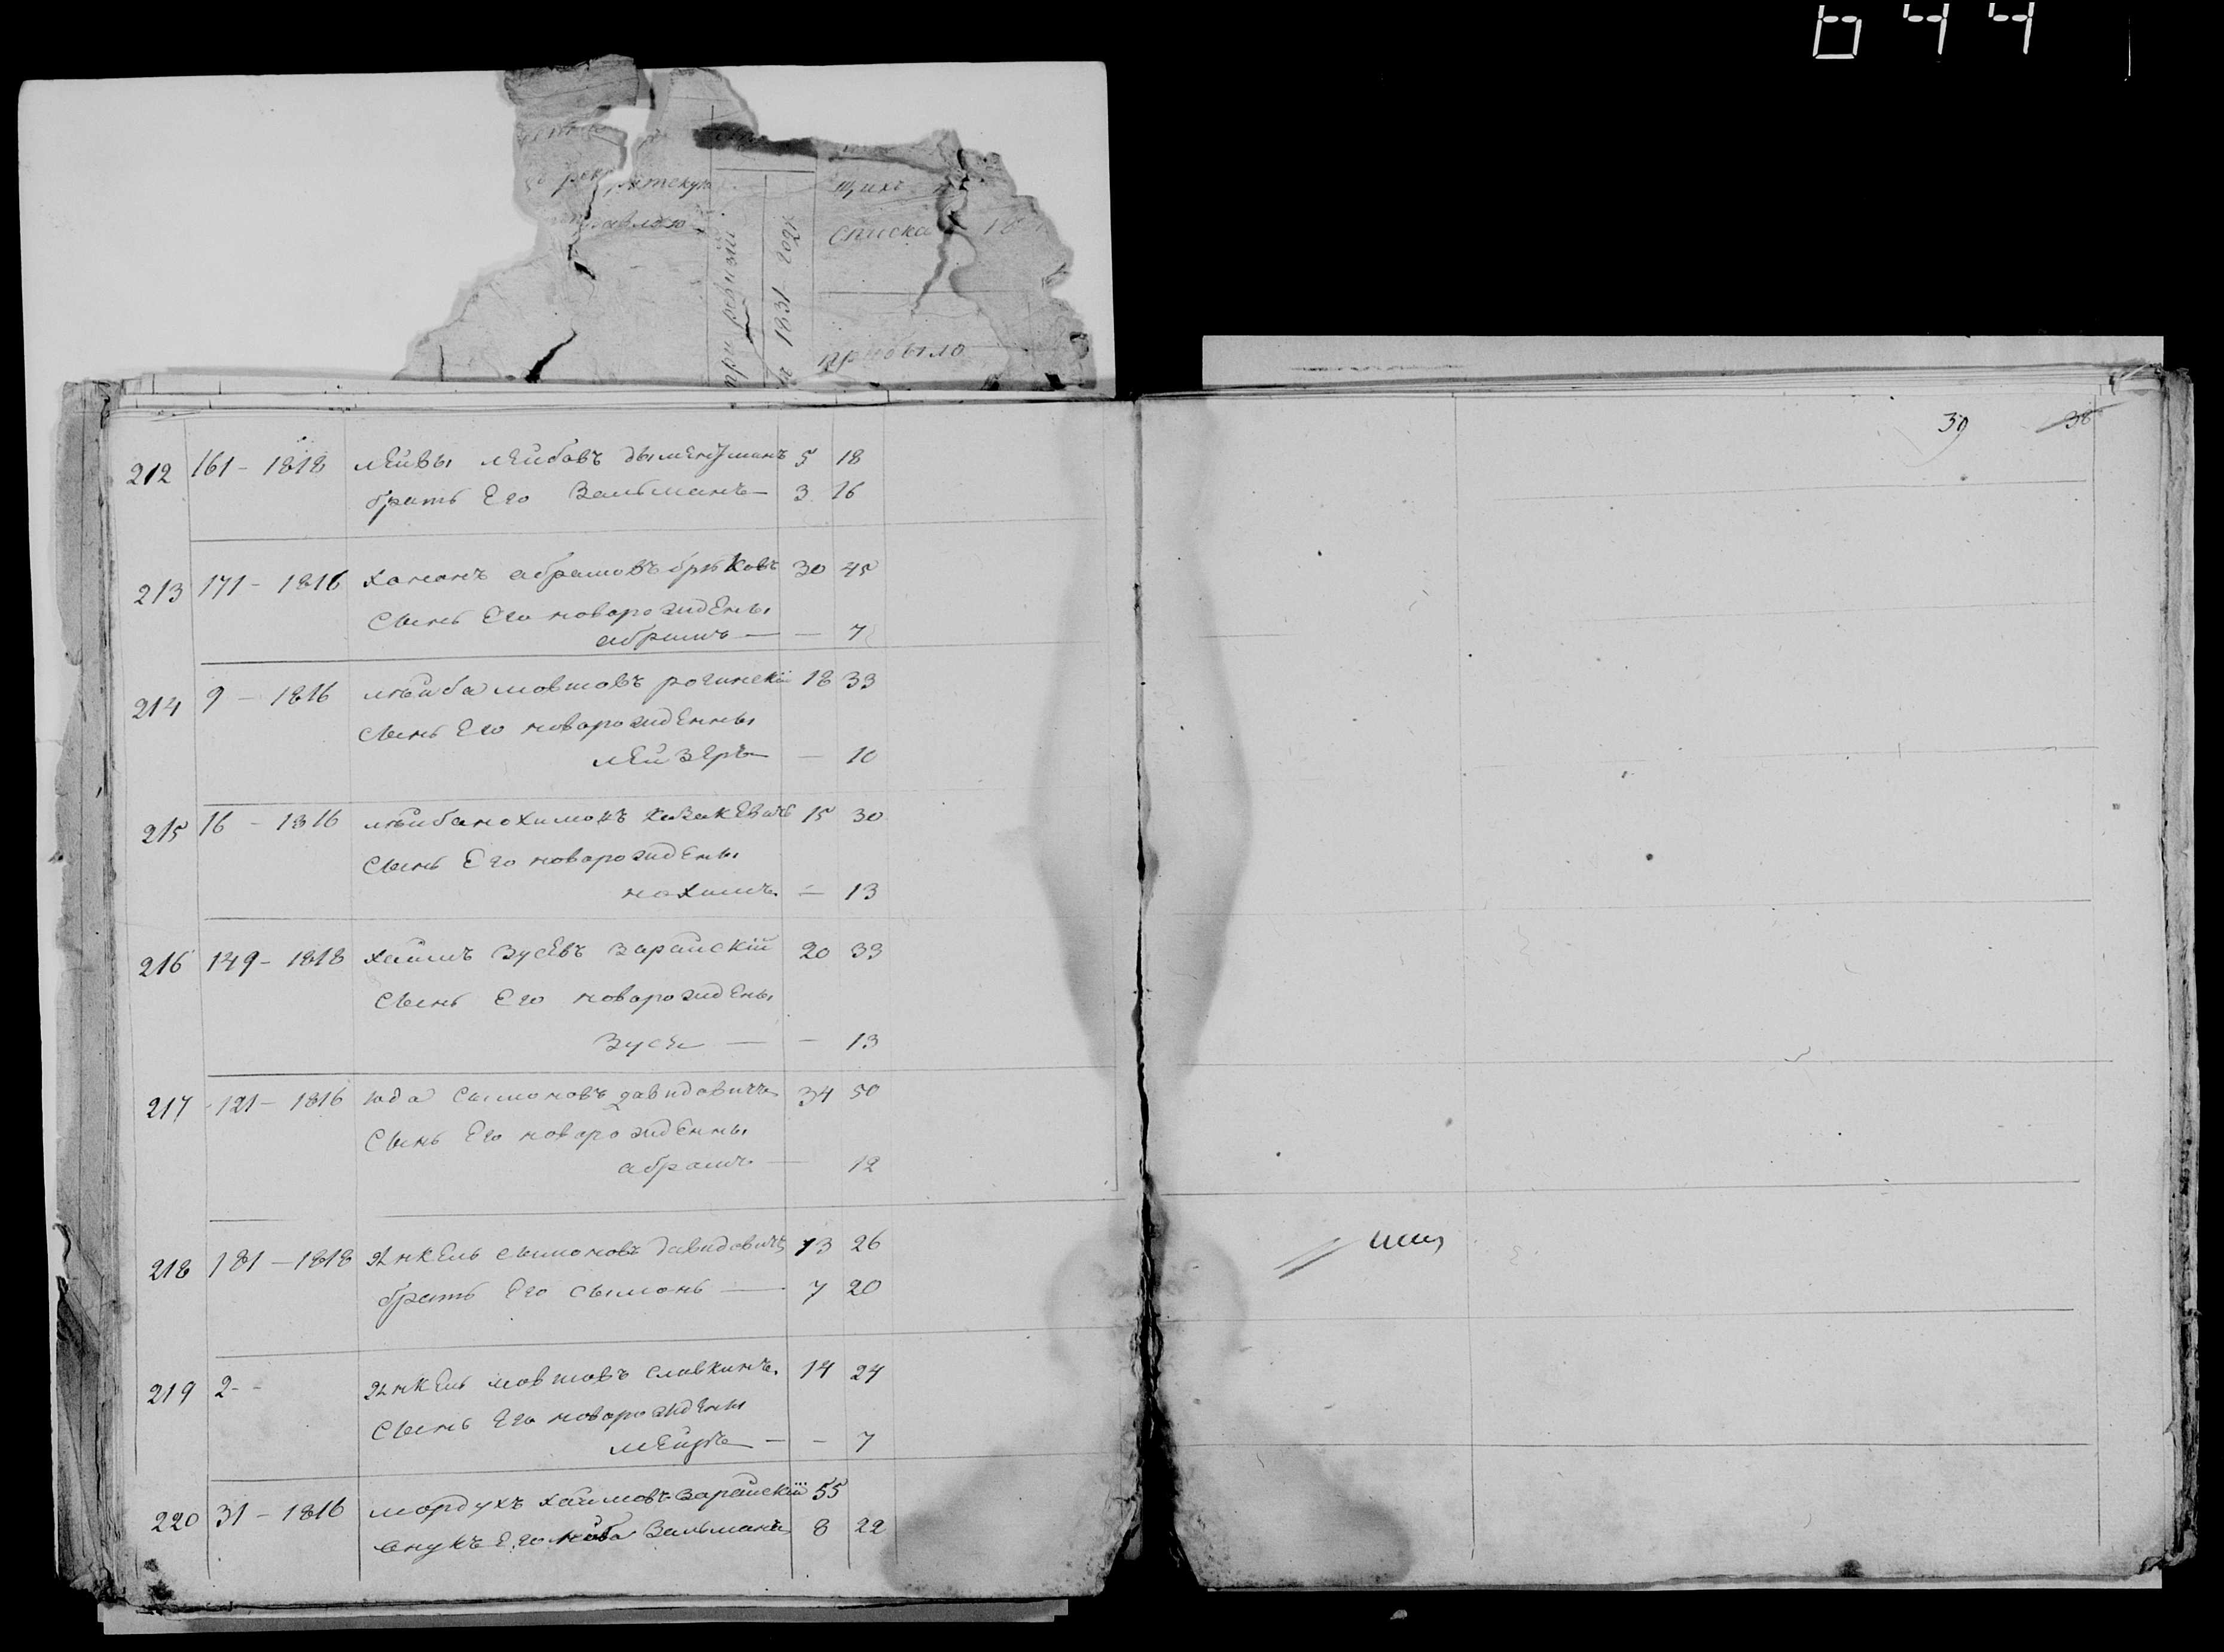 044
списка 18
при ревизiи
1831 году
прибыло
39 38
212 161 - 1818 лейвы лейбовъ 5 18
братъ Его Зальманъ - 3 16
213 171 - 1816 хононъ абрамовъ 30 45
Сынъ Его новорожденны
абрамъ - - 7
214 9 - 1816 лѣйба мовшовъ рогинскiй 18 33
Сынъ Его новорожденны
лейзеръ - 10
215 16 - 1816 лѣйба нохимовъ 15 30
Сынъ Его новорожденны
нохимъ - 13
216 149 - 1818 хаимъ Зусевъ Зарайскiй 20 33
Сынъ Его новорожденны
Зусь - - 13
217 121 - 1816 юда Сымоновъ давидовичъ 34 50
Сынъ Его новорожденны
абрамъ - 12
218 181 - 1818 Янкель сымоновъ давидовичъ 13 26
братъ Его сымонъ - 7 20
219 2 - - Янкель мовшовъ славкинъ 14 24
Сынъ Его новорожденны
- - 7
220 31 - 1816 мордухъ хаимовъ Зарайскiй 55
внукъ Его Зальмана 8 22